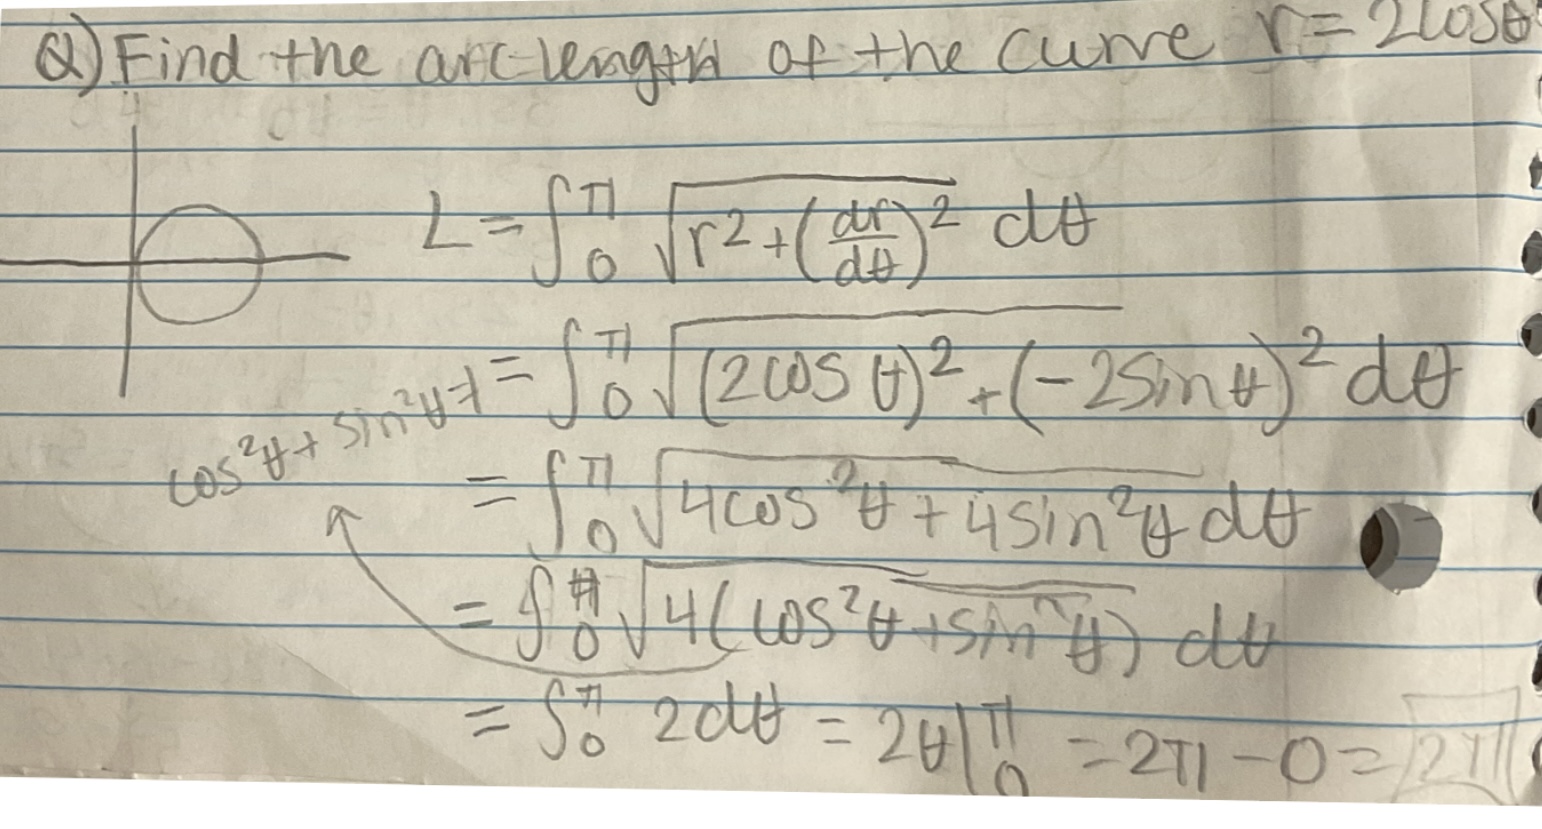 Q) Find the arc length of the curve r = 2cosθ
L = ∫₀^π √(r² + (dr/dθ)²) dθ
= ∫₀^π √((2cos θ)² + (-2sin θ)²) dθ
cos²θ + sin²θ = 1
= ∫₀^π √(4cos²θ + 4sin²θ) dθ
= ∫₀^π √(4(cos²θ + sin²θ)) dθ
= ∫₀^π 2dθ = 2θ|₀^π = 2π - 0 = 2π